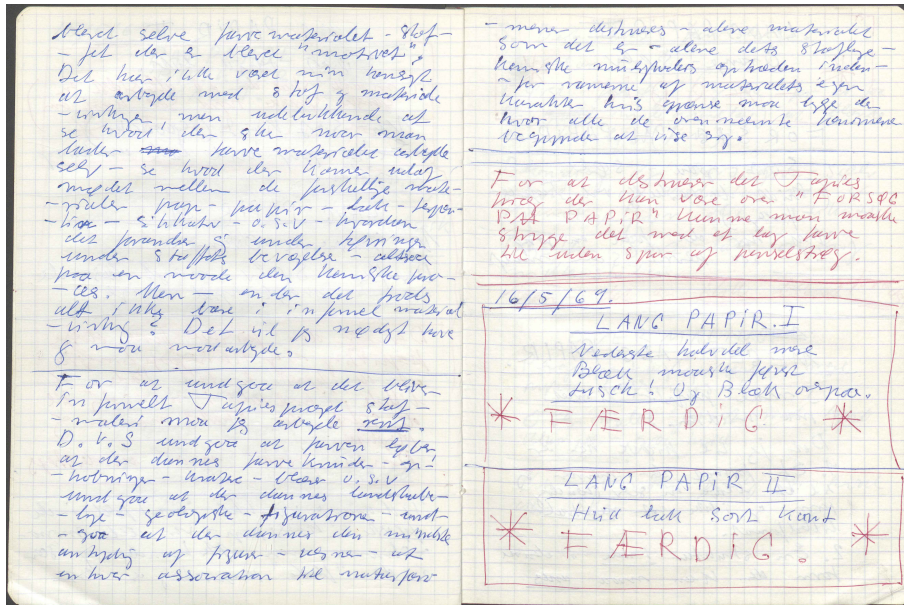 blevet selve farvematerialet - stof-
- for der er blevet "motivet".
Det har ikke været min hensigt
at arbejde med stof og materiale
-virkning men udelukkende at
se hvad der sker naar man
lader farvematerialet arbejde
selv - se hvad der kommer ud af
mødet mellem de forskellige mate-
-rialer pap - papir - lak - terpen-
tin - sikkativ - o.s.v. - hvordan
det forandres under
under stoffets bevægelse - altsaa
paa en maade den kemiske pro-
-ces. Men - er det trods
alt ikke bare informel material
-virkning? Det vil jeg nødigt have
og maa modarbejde.
For at undgaa at det bliver
informelt Tapiespræget stof-
-maleri maa jeg arbejde rent.
D.V.S undgaa at farven løber,
at der dannes farveknuder - op-
-hobninger - - blærer o.s.v
undgaa at der dannes landskabe-
-lige - geologiske - figurationer - und-
-gaa at der dannes den mindste
antydning af figurer - væsner - at
enhver association til naturfæno-
-mener destrueres - alene materialet
som det er - alene dets stoflige -
kemiske muligheders optræden inden-
-for rammerne af materialets egen
karakter hvis grænse maa ligge der
hvor alle de ovennævnte fænomener
begynder at vise sig.
For at destruere det Tapies
præg der kan være over "FORSØG
PAA PAPIR" kunne man maaske
stryge det med et lag farve
helt uden spor af penselstrøg.
16/5/69.
LANG PAPIR. I
Nederste halvdel mere
Blæk maaske først
tusch! Og Blæk ovenpaa.
* FÆRDIG. *
LANG PAPIR II
Hvid lak Sort Kant
* FÆRDIG. *